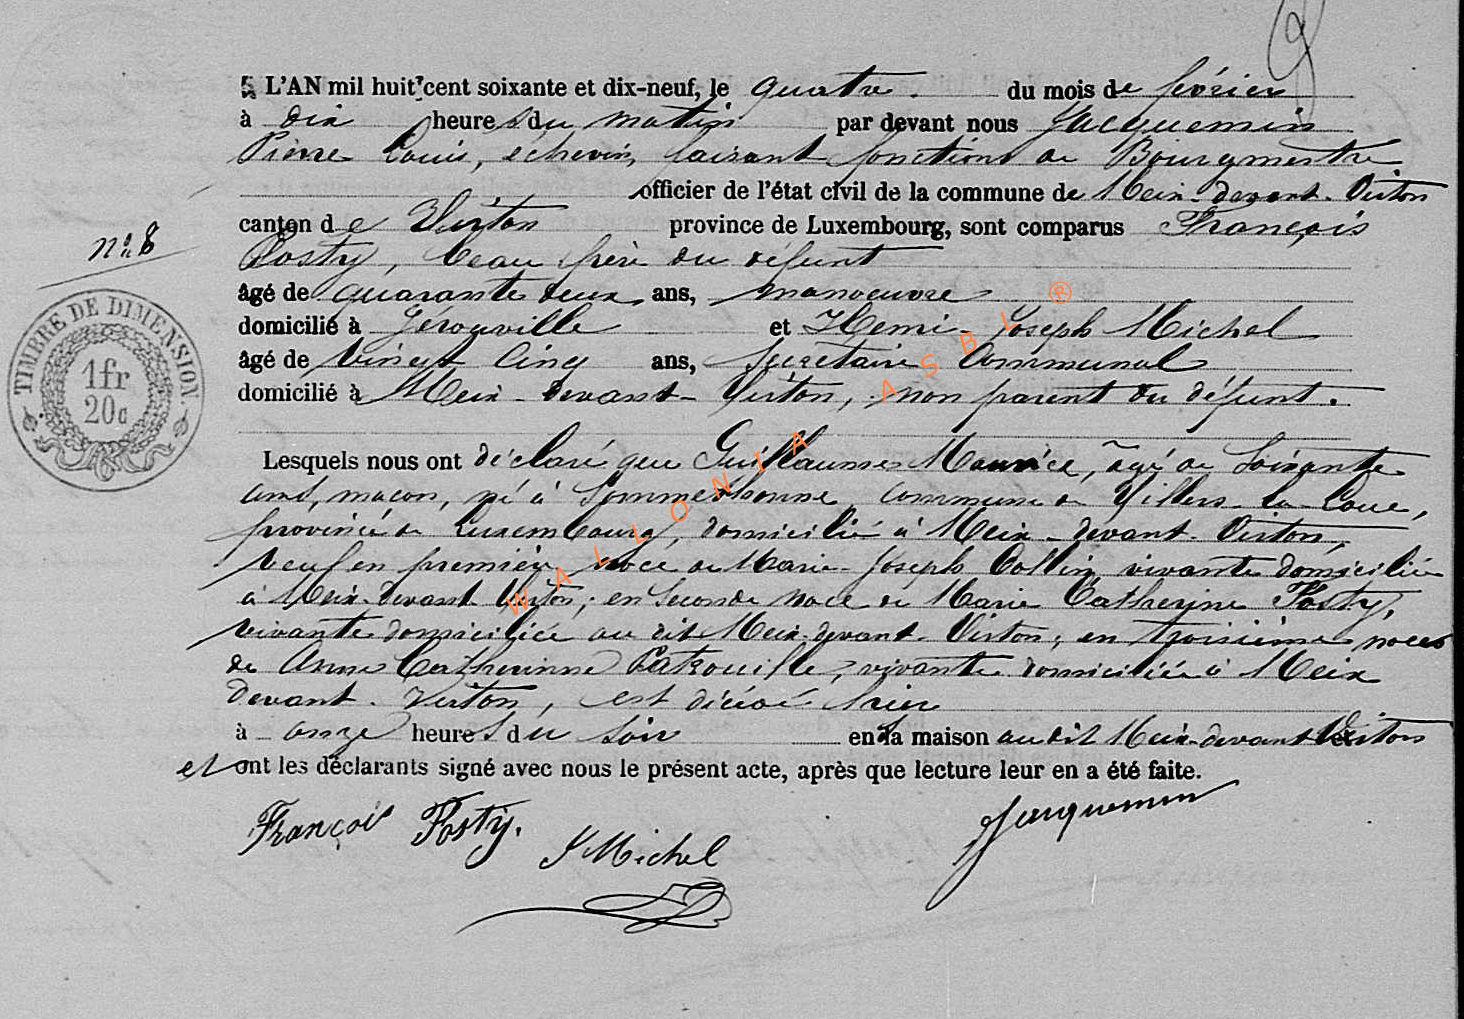 L'AN mil huit cent soixante et dix-neuf, le quatre. du mois de février
à dix heures du matin par devant nous Jacquemin
Pierre Louis, echevin, faisant fonctions de Bourgmestre
officier de l'état civil de la commune de Meix-devant-Virton
canton de Virton province de Luxembourg, sont comparus François
n° 8
Posty, beau frère du défunt
âgé de quarante deux ans, manoeuvre
domicilié à Gérouville et Henri-Joseph Michel
âgé de vingt cinq ans, Secretaire Communal
domicilié à Meix-devant-Virton, non parent du défunt.
TIMBRE DE DIMENSION
1fr
20c
Lesquels nous ont déclaré que Guillaume Maurice, âgé de Soixante
ans, maçon, né à Sommethonne, commune de Villers-la-Loue,
province de Luxembourg, domicilié à Meix-devant-Virton,
veuf en première noce de Marie-Joseph Collin vivante domiciliée
à Meix-devant-Virton; en seconde noce de Marie Catherine Posty,
vivante domiciliée au dit Meix-devant-Virton; en troisième noces
de Anne Catherinne vivante domiciliée à Meix
devant-Virton, est décédé hier
à onze heures du soir en sa maison audit Meix-devant-Virton
et ont les déclarants signé avec nous le présent acte, après que lecture leur en a été faite.
François Posty. Jacquemin
J Michel
WALLONIA ASBL ®